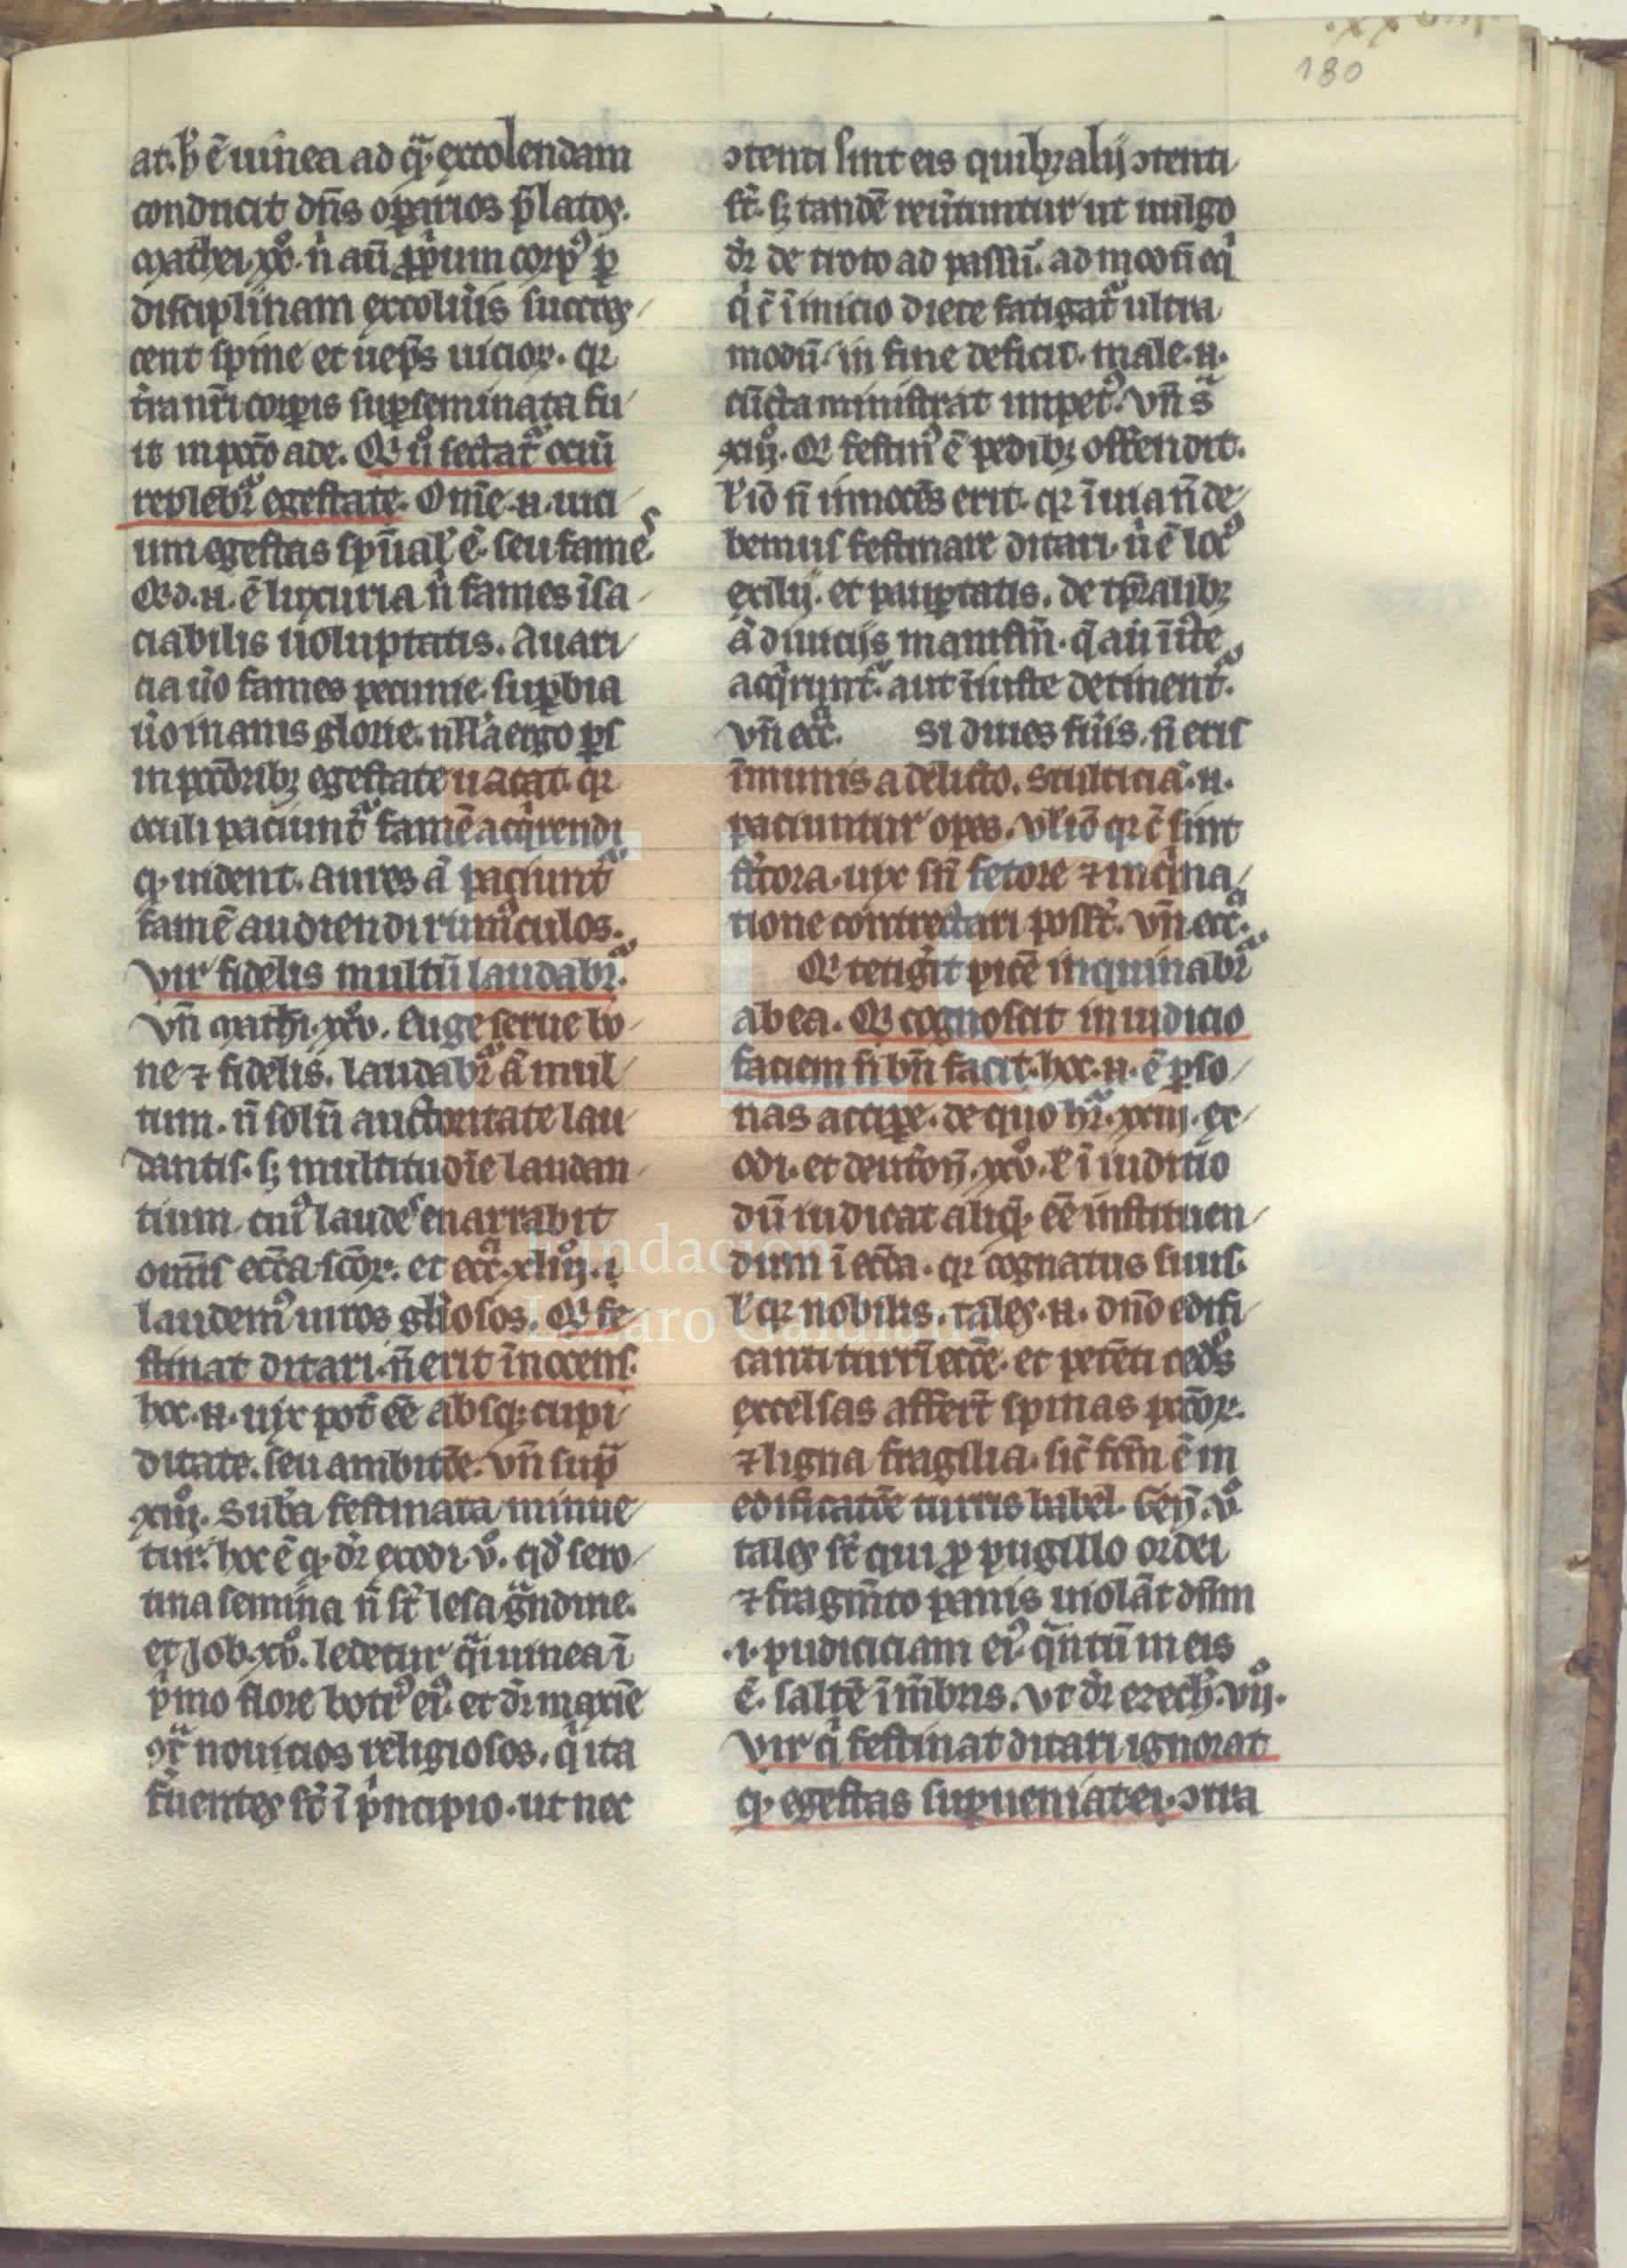 180
at. h̾ ē uinea ad q̄ꝫ excolendam
conducit dn̄s oꝑarios p̄latos.
mathei xxº. n̄ aū ꝓp̄um corpꝰ ꝑ
disciplinam excolūis succres
cent spine et uep̄s uicioꝝ. qꝛ
t̄ra nr̄i corꝑis suꝑseminata fu
it in pctō ade. Qi ū sectat᷑ ociū
replebr᷑ egestate. Om̄e .n. uici
um egestas sp̄ual̾ ē. seu fames
Qd .n. ē luxuria n̄ fames īsa
ciabilis uoluptatis. Auari
cia ūo fames pecunie. suꝑbia
ūo inanis glorie. nll̄a ergo ps
in pctōribꝫ egestate uacat. qꝛ
oculi paciunt᷑ famē acq̄rendi
qꝫ uident. aures ā paciunt᷑
famē audiendi rumūculos.
Vir fidelis multū laudabr᷑.
Vn̄ mathi. xxv. Euge serue bo
ne ⁊ fidelis. laudabr᷑ ā mul
tum. n̄ solū auctoritate lau
dantis. sꝫ multitudīe laudan
tium. cuiꝰ laudes enarrabit
omīs ecc̄a sc̄oꝝ. et ecc̄. xliiij.
laudemꝰ uiros gl̄iosos. Qi fe
stinat ditari. n̄ erit īnocens.
hoc .n. uix pot̄ eē absqꝫ cupi
ditate. seu ambitōe. vn̄ sup̄
xiij. Sub̄a festinata minue
tur. hoc ē qꝫ dr̄ exodi. v. qd̾ sero
tina semina n̄ st̄ lesa g̈ndine.
et Job. xv. ledetur q̄i uinea ī
pͥmo flore botrꝰ eiꝰ. et dr̄ maxīe
ꝯᷓ nouicios religiosos. qͥ ita
fūentes st̄ ī pͥncipio. ut nec
ꝯtenti sint eis quibꝫ alij ꝯtenti
st̄. sꝫ tandē reūtuntur ut uulgo
dr̄ de troto ad passū. ad modū eqͥ
qͥ c̄ ī inicio diete fatigat᷑ ultra
modū. in fine deficit. male .n.
cūcta ministrat impetꝰ. Vn̄ s̄
xiiij. Qi festinꝰ ē pedibꝫ offendit.
l̾ iō n̄ innocēs erit. qꝛ ī uia n̄ de
bemus festinare ditari. ū ē locꝰ
exilij. et pauꝑtatis. de tꝑalibꝫ
ā diuicijs manifm̄. q̄ aū īiꝰte
acqͥrunt᷑. aut īiuste detinent᷑.
Vn̄ ecc̄. Si diues fūis. n̄ eris
īmunis a delicto. Stulticiā .n.
paciuntur opes. Vl̾ iō qꝛ c̄ sint
st̄cora. uix sn̄ fetore ⁊ inqͥna
tione contrectari posst̄. vn̄ ecc̄.
Qi tetigͥt picē inquinabr᷑
ab ea. Qi cognoscit in iudicio
faciem n̄ bn̄ facit. hoc .n. ē ꝑso
nas accipe. de quo hr̄. xxiij. ex
odi. et deut̾on̄. xxv. l̾ ī iudicio
dū iudicat aliqͥꝫ eē instituen
dum ī ecc̄a. qꝛ cognatus suus.
l̾ qꝛ nobilis. tales .n. dn̄o edifi
canti turrī ecc̄e. et petēti cedros
excelsas affert̄ spinas pctōꝝ.
⁊ ligna fragilia. sic̄ fcm̄ ē in
edificatōe turris babel. Gen̄. v.
tales st̄ qui ꝓ pugillo ordei
⁊ fragm̄to panis uiolāt dn̄m
.i. pudiciciam eiꝰ q̄ntū in eis
ē. saltē ī mēbris. Vt dr̄ ezech̾. vij.
Vir qͥ festinat ditari ignorat
qꝫ egestas suꝑueniat ei. ꝯtra